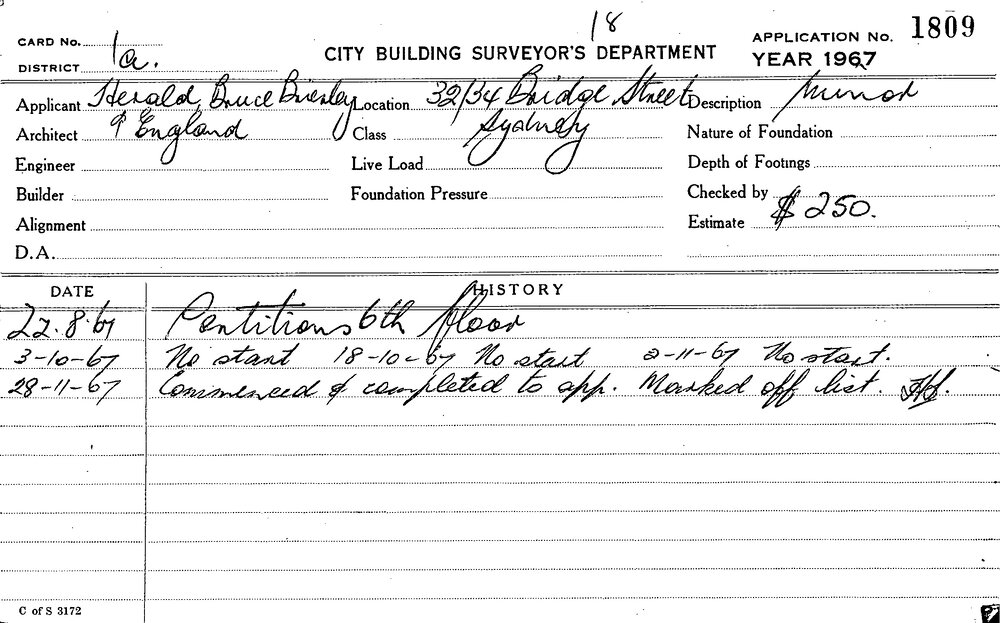 18
CARD No. 1a. CITY BUILDING SURVEYOR'S DEPARTMENT APPLICATION No. 1809
DISTRICT YEAR 1967
Applicant Herald, Bruce Brierley Location 32/34 Bridge Street Description Minor
Architect & England Class Sydney Nature of Foundation
Engineer Live Load Depth of Footings
Builder Foundation Pressure Checked by
Alignment Estimate $250.
D.A.
DATE HISTORY
22.8.67 Partitions 6th floor
3-10-67 No start 18-10-67 No start 2-11-67 No start.
28-11-67 Commenced & completed to app. Marked off list.
C of S 3172